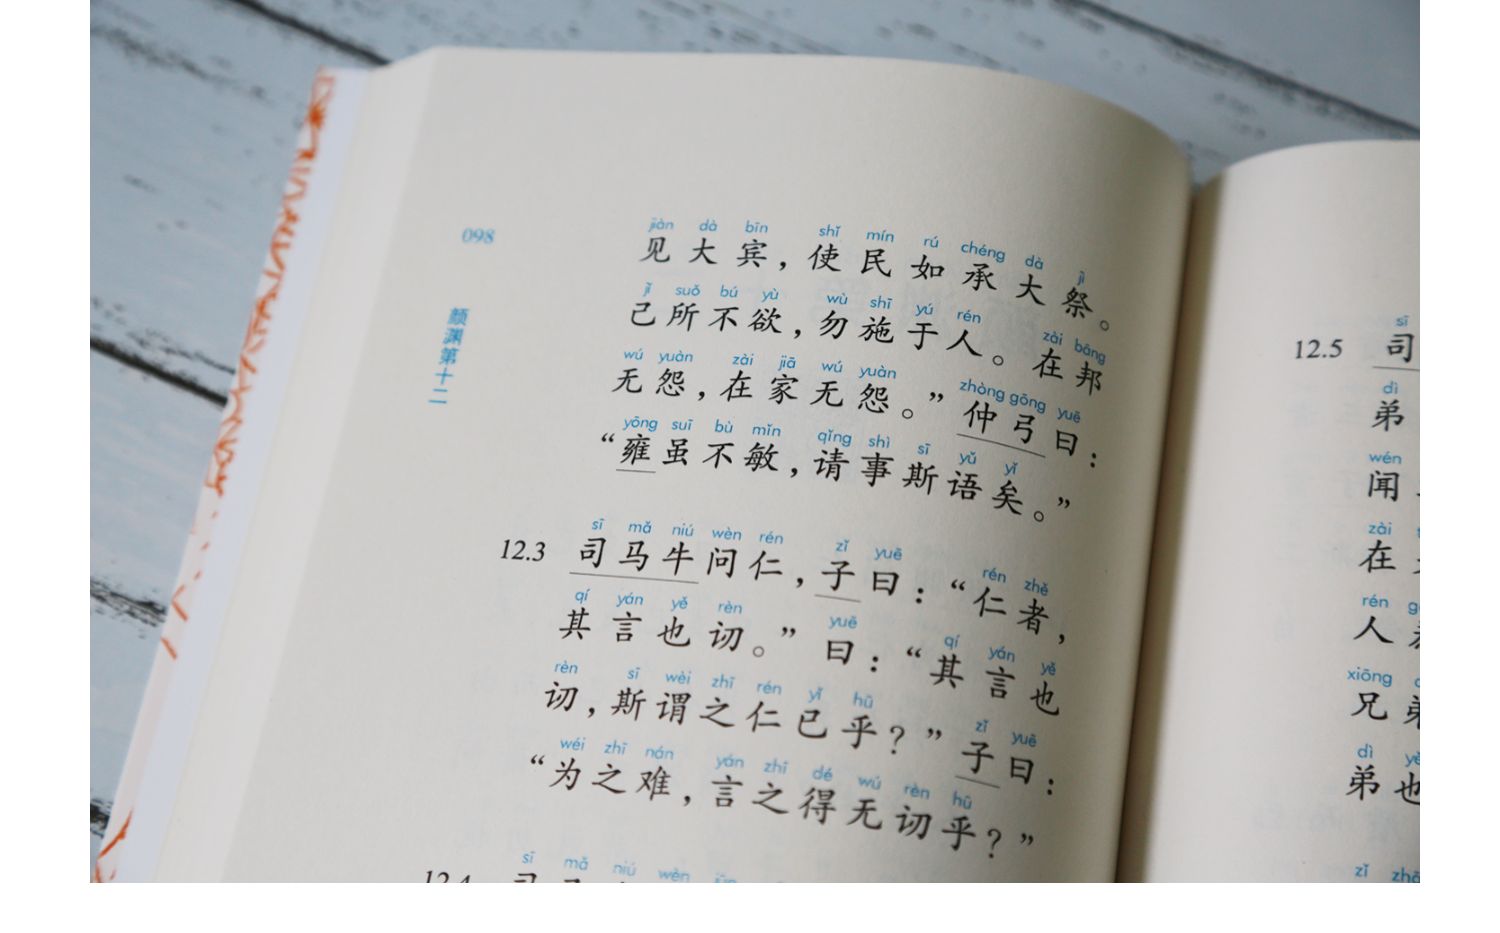 098
颜渊第十二
jiàn dà bīn shǐ mín rú chéng dà jì
见大宾，使民如承大祭。
jǐ suǒ bú yù wù shī yú rén zài bāng
己所不欲，勿施于人。在邦
wú yuàn zài jiā wú yuàn zhòng gōng yuē
无怨，在家无怨。”仲弓曰：
yōng suī bù mǐn qǐng shì sī yǔ yǐ
“雍虽不敏，请事斯语矣。”
sī mǎ niú wèn rén zǐ yuē rén zhě
12.3 司马牛问仁，子曰：“仁者，
qí yán yě rèn yuē qí yán yě
其言也讱。”曰：“其言也
rèn sī wèi zhī rén yǐ hū zǐ yuē
讱，斯谓之仁已乎？”子曰：
wéi zhī nán yán zhī dé wú rèn hū
“为之难，言之得无讱乎？”
sī mǎ niú wèn jūn
12.4 司马
sī
12.5 司
dì
弟
wén
闻
zài
在
rén
人
xiōng
兄弟
dì yě
弟也
zǐ